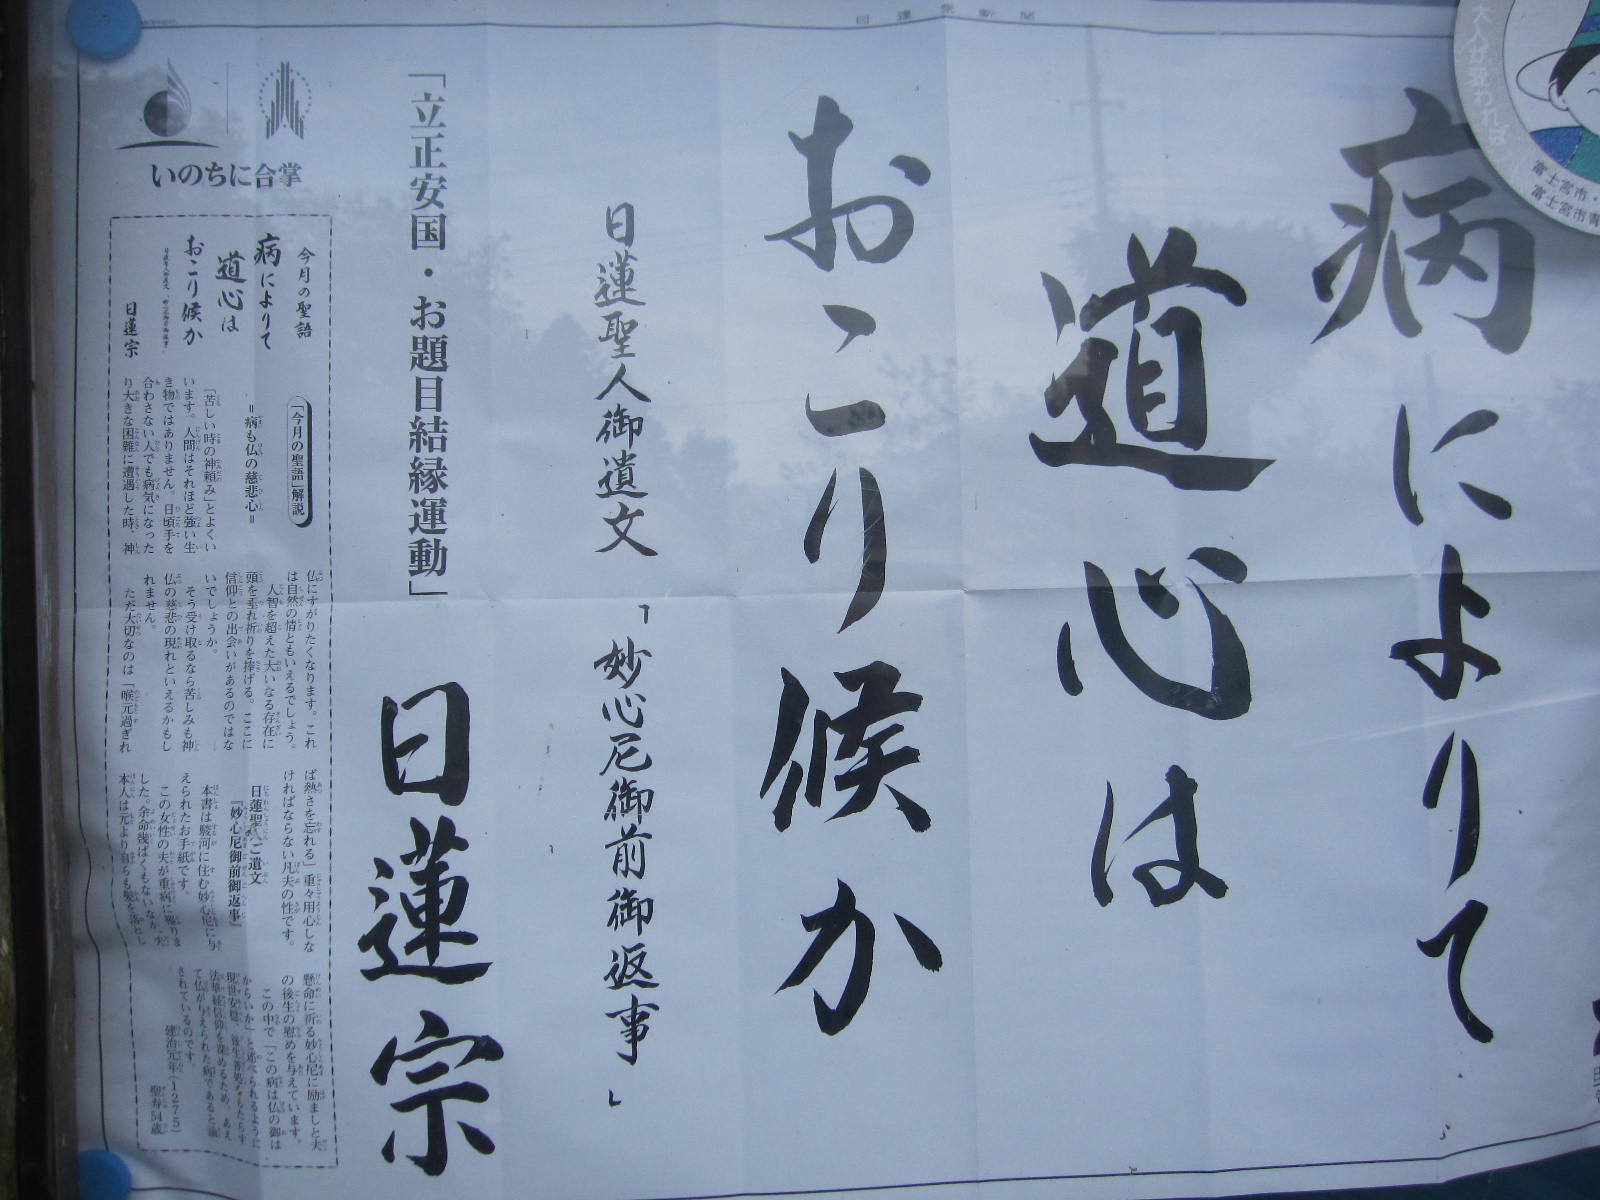 日蓮宗新聞
大人が変われば
富士宮市・
富士宮市青
病によりて
道心は
おこり候か
日蓮聖人御遺文「妙心尼御前御返事」
「立正安国・お題目結縁運動」
日蓮宗
いのちに合掌
今月の聖語
病によりて
道心は
おこり候か
日蓮宗
「今月の聖語」解説
=病も仏の慈悲心=
「苦しい時の神頼み」とよくい
います。人間はそれほど強い生
き物ではありません。日頃手を
合わさない人でも病気になった
り大きな困難に遭遇した時、神
仏にすがりたくなります。これ
は自然の情ともいえるでしょう。
人智を超えた大いなる存在に
頭を垂れ祈りを捧げる。ここに
信仰との出会いがあるのではな
いでしょうか。
そう受け取るなら苦しみも神
仏の慈悲の現れといえるかもし
れません。
ただ大切なのは「喉元過ぎれ
ば熱さを忘れる」重々用心しな
ければならない凡夫の性です。
日蓮聖人ご遺文
『妙心尼御前御返事』
本書は駿河に住む妙心尼に与
えられたお手紙です。
この女性の夫が重病に罹りま
した。余命幾ばくもないなか、夫
本人は元より自らも髪を落とし
懸命に祈る妙心尼に励ましと夫
の後生の慰めを与えています。
この中で「この病は仏の御は
からいか」と述べられるように
現世安穏、後生善処をもたらす
法華経信仰を深めるため、あえ
て仏が与えられた病であると諭
されているのです。
建治元年(1275)
聖寿54歳